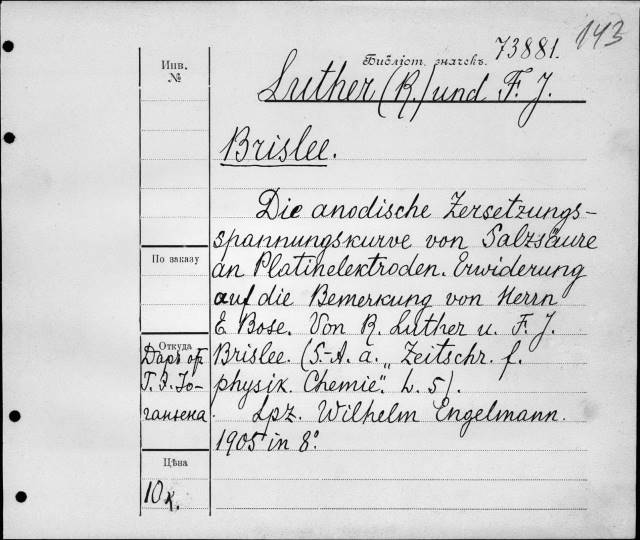 143
Библіот. значекъ. 73881.
Инв.
№
Luther (R.) und F. J.
Brislee.
Die anodische Zersetzungs-
spannungskurve von Salzsäure
По заказу
an Platinelektroden. Erwiderung
auf die Bemerkung von Herrn
E Bose. Von R. Luther u. F. J.
Откуда
Даръ
Brislee. (S.-A. a. „Zeitschr. f.
physik. Chemie". L. 5).
Lpz. Wilhelm Engelmann.
1905 in 8°.
Цѣна
10 к.